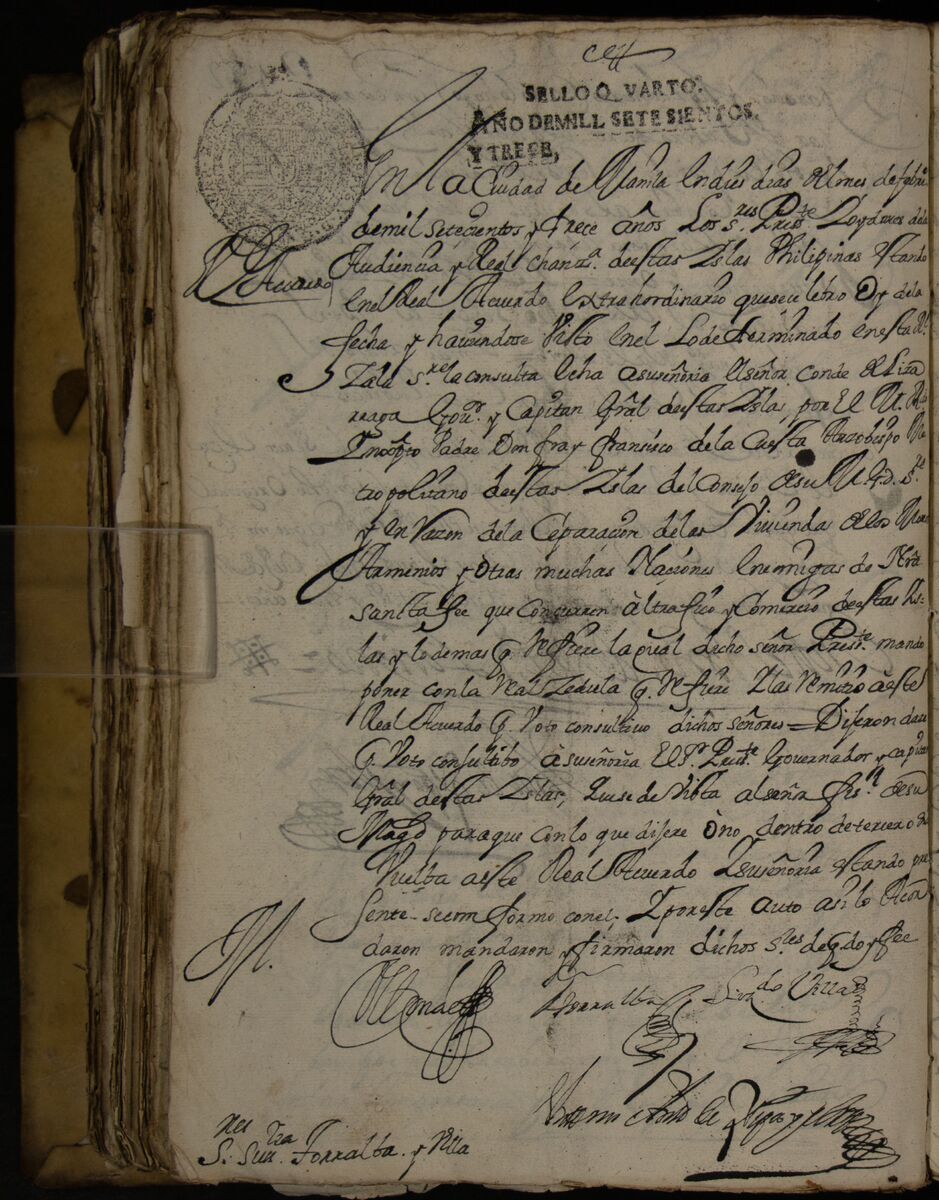 SELLO QVARTO.
AÑO DE MILL SETESIENTOS.
Y TRECE,
En la Ciudad de Manila en dies dias del mes de febre
de mil setecientos y trece años Los s.res Presid.te Loydores dela
Rl Acuerdo
Audiencia y Real chanz.a deestas Islas Philipinas estando
en el Real Acuerdo extrahordinario que se celebro Oy dela
fecha y haviendose visto en el Lo determinado en esta Rl
Zala s.re la consulta hecha a su señoria el señor conde de Liza
rraga Gov.or y Capitan Gral deestas Islas, por El
Padre Don fray francisco de la Cuesta Arzobispo Me
tropolitano deestas Islas del Consejo de su M. q. D. g.e
y en razon dela Ceparacion delas Viviendas delos
Armenios y otras muchas Naciones enemigas de Nra
santta fee que concurren àl trafico y Comercio deestas Is=
las y lo demas q. refiere la qual dicho señor Press.te mando
poner con la Real Zedula q. refiere y las remitio à este
Real Acuerdo p. Voto consultivo dichos señores = Dijeron davan
p. Voto consultibo à su señoria El S.r Presid.te Governador y capitan
Gral deestas Islas, que se de vista al señor fis.l de su
Magd para que con lo que dijere ò no dentro de tercero dia
Vuelba a este Real Acuerdo Y su señoria estando pre
sente se comformo con el. Y por este auto asi lo Acor
daron mandaron y firmaron dichos s.res de q. doy fee
Torralba
Villa
S.res
Torralba. y Villa